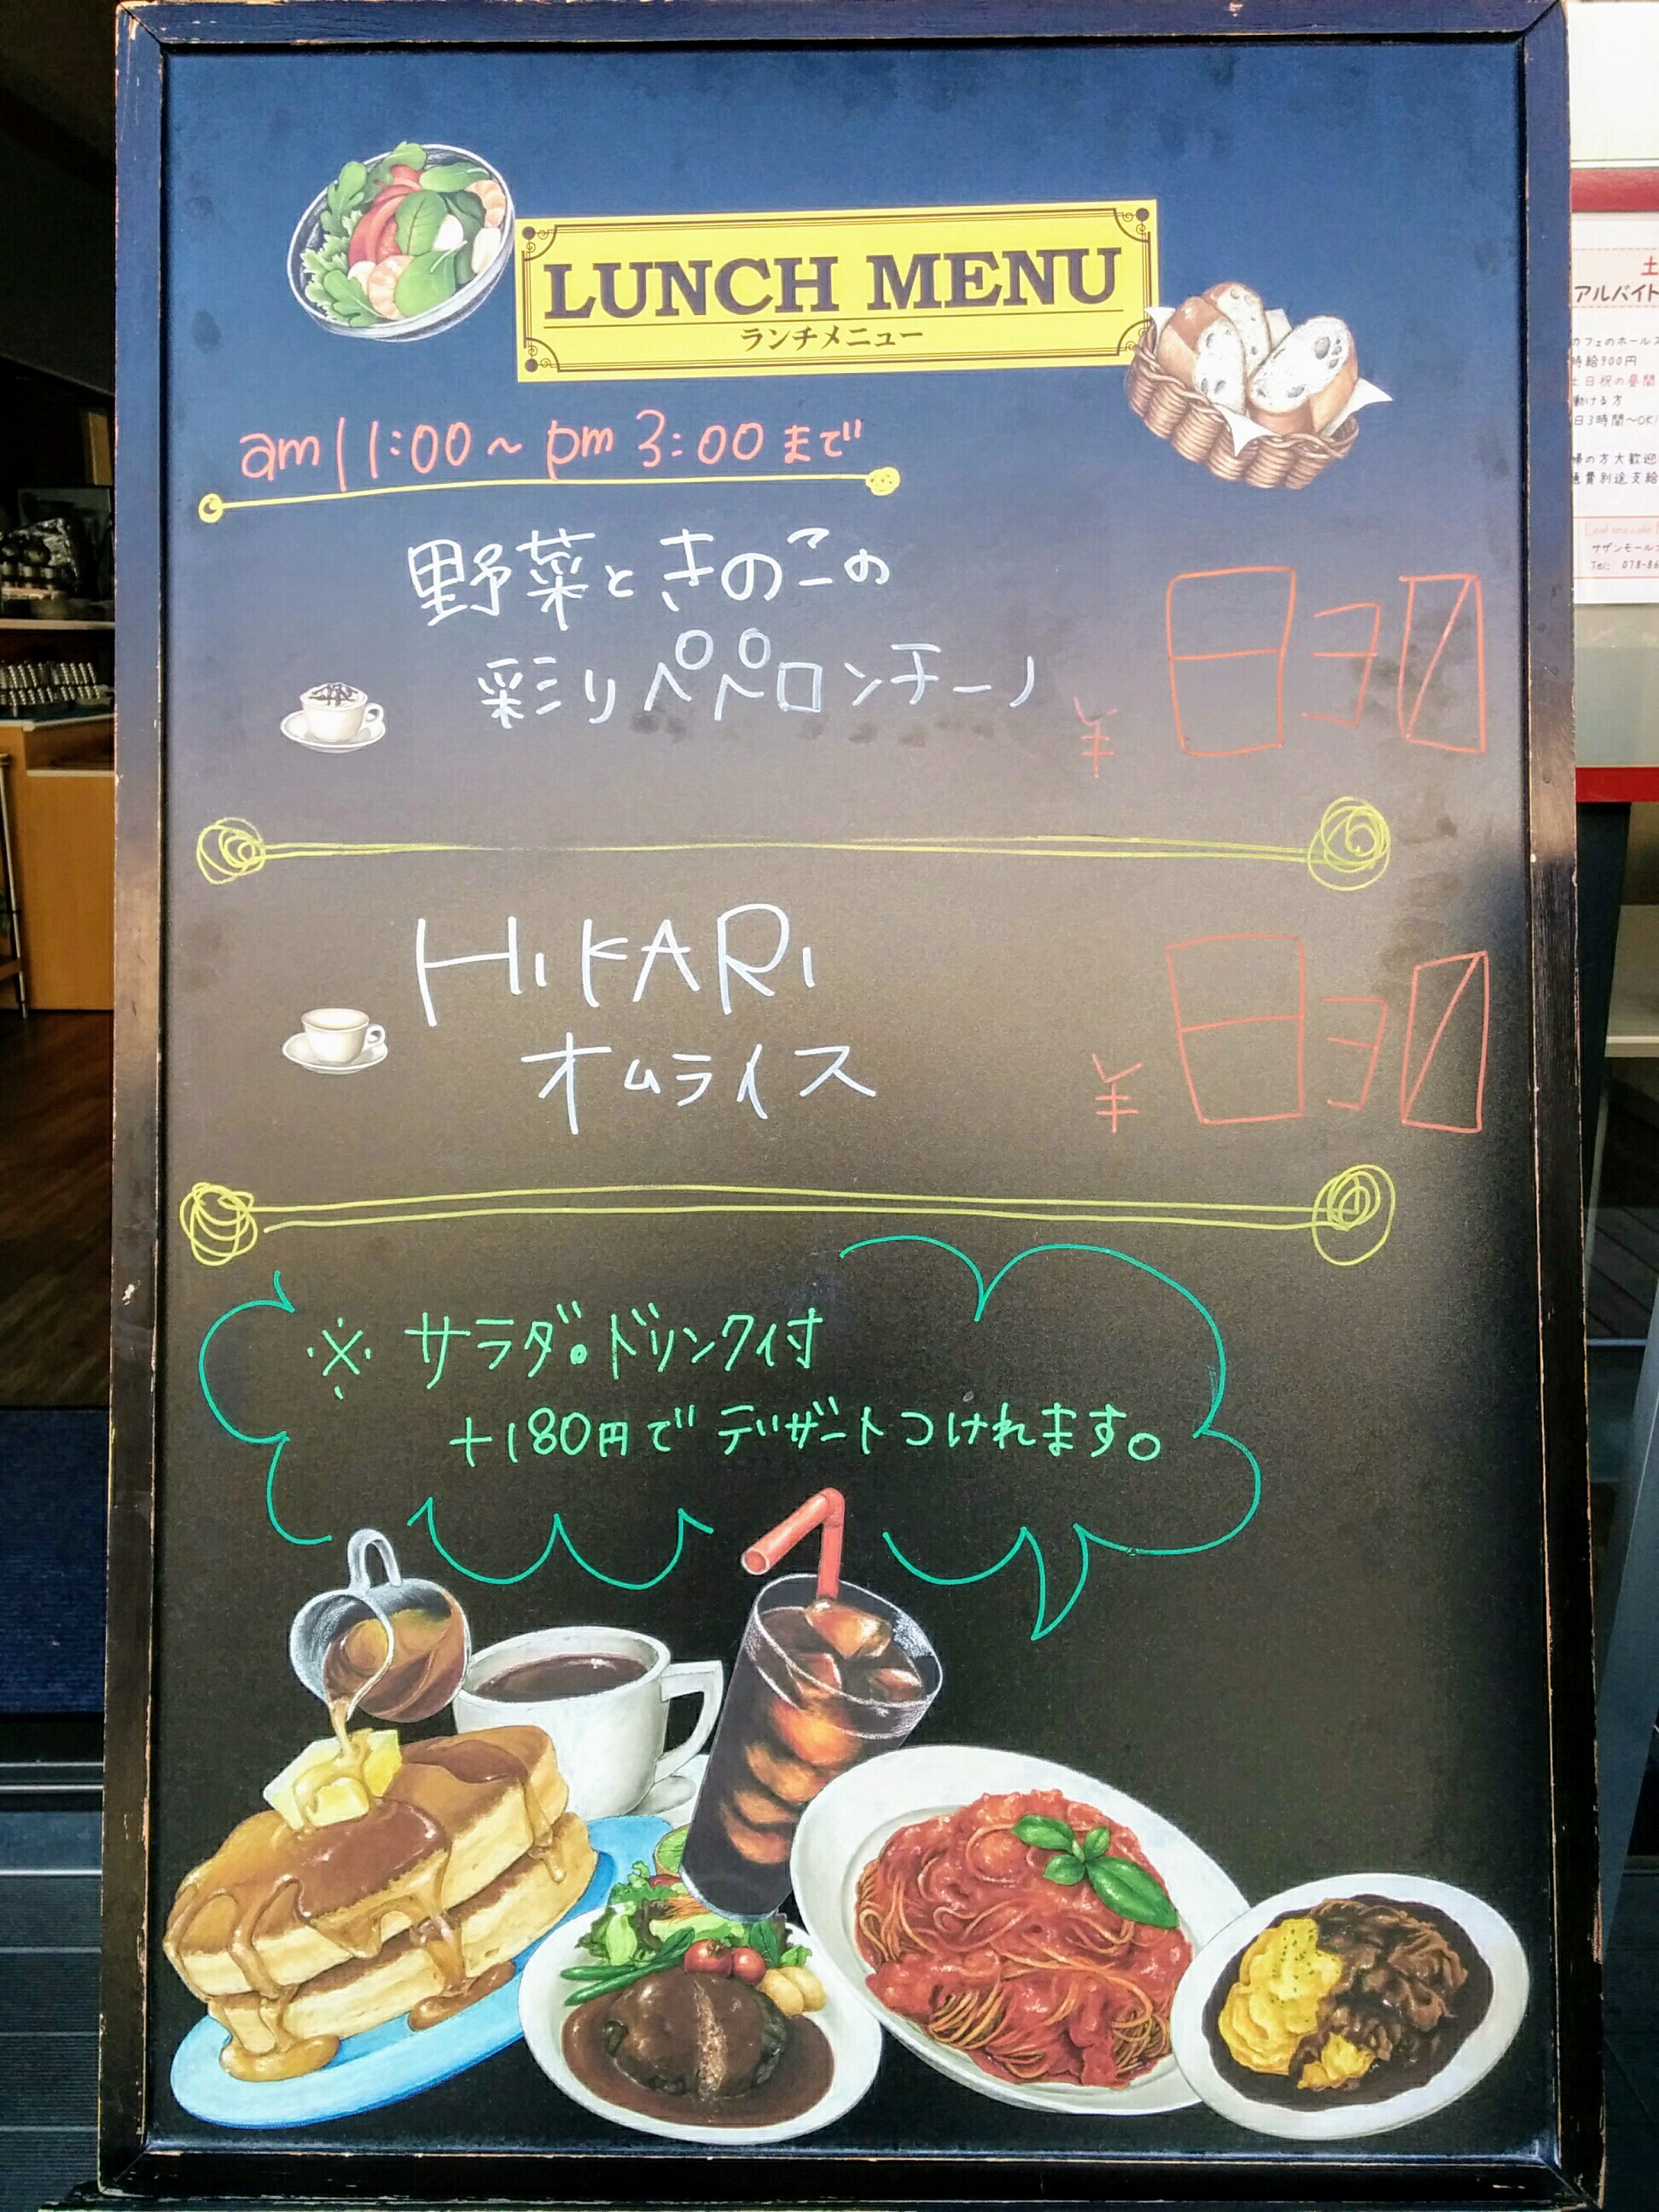 LUNCH MENU
ランチメニュー
am 11:00～pm 3:00 まで
野菜ときのこの
彩りペペロンチーノ
¥ 830
HIKARI
オムライス
¥ 830
※ サラダ。ドリンク付
+180円で デザートつけれます。
土
アルバイト
カフェのホールス
時給900円
土日祝の昼間
働ける方
日3時間～OK!
婦の方大歓迎
通費別途支給
leaf tea cafe
サザンモール
Tel: 078-86